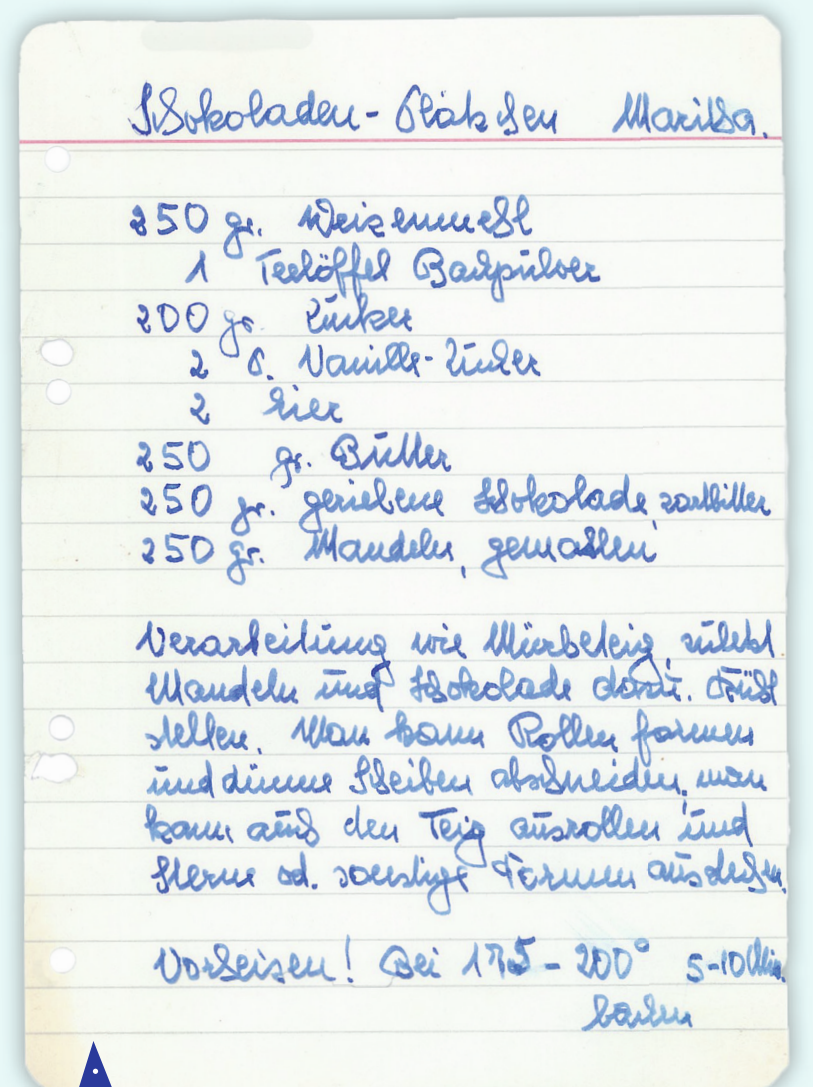 Schokoladen-Plätzchen Mariba.
250 gr. Weizenmehl
1 Teelöffel Backpulver
200 gr. Zucker
2 P. Vanille-Zucker
2 Eier
250 gr. Butter
250 gr. geriebene Schokolade, zartbitter
250 gr. Mandeln, gemahlen
Verarbeitung wie Mürbeteig, zuletzt
Mandeln und Schokolade dazu. Kühl
stellen. Man kann Rollen formen
und dünne Scheiben abschneiden, man
kann auch den Teig ausrollen und
Sterne od. sonstige Formen ausstechen.
Vorheizen! Bei 175-200° 5-10 Min.
backen